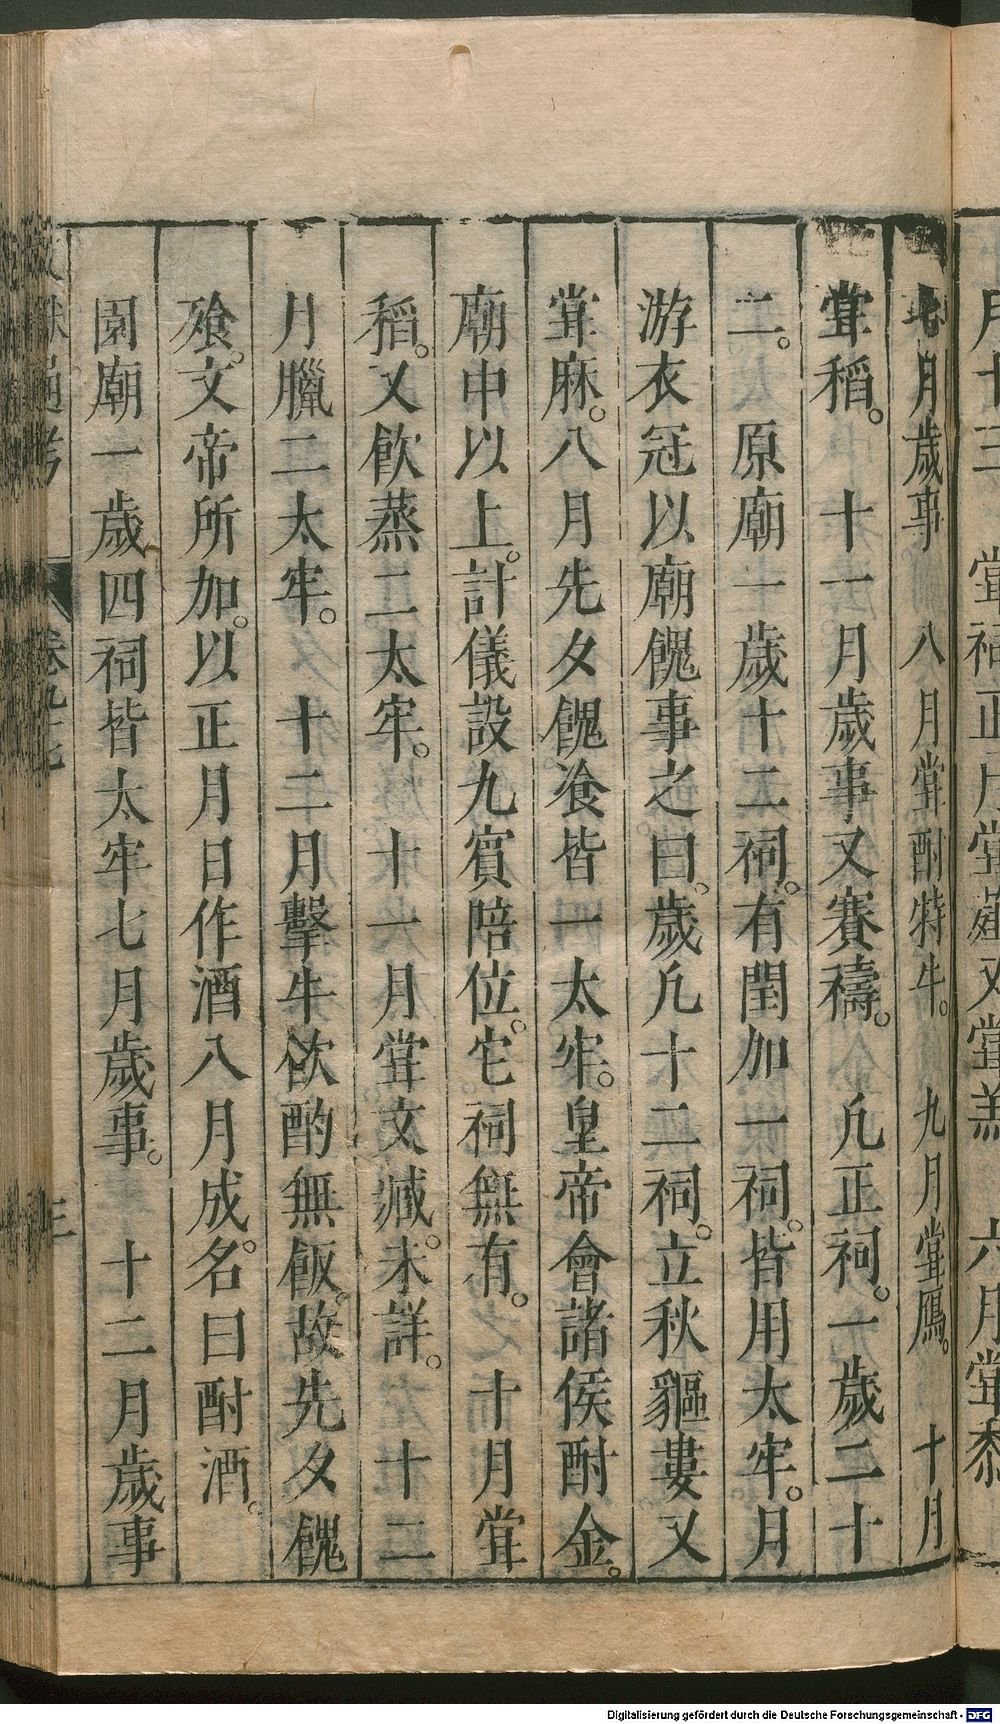 月十三 甞祠正月甞 又甞羔 六月甞黍
七月歲事 八月甞酎特牛。 九月甞鴈。 十月
甞稻。 十一月歲事又賽禱。 凢正祠。一歲二十
二。 原廟一歲十二祠。有閏加一祠。皆用太牢。月
游衣冠以廟餽事之曰。歲凢十二祠。立秋貙婁又
甞麻。八月先夕餽飱皆一太牢。皇帝會諸侯酎金。
廟中以上。計儀設九賓陪位。它祠無有。 十月甞
稻。又飲蒸二太牢。 十一月甞文臧。未詳。 十二
月臘二太牢。 十二月擊牛欲酌無飯。故先夕餽
飱。文帝所加。以正月日作酒八月成。名曰酎酒。
園廟一歲四祠皆太牢七月歲事。 十二月歲事
卷九十七
三
Digitalisierung gefördert durch die Deutsche Forschungsgemeinschaft - DFG